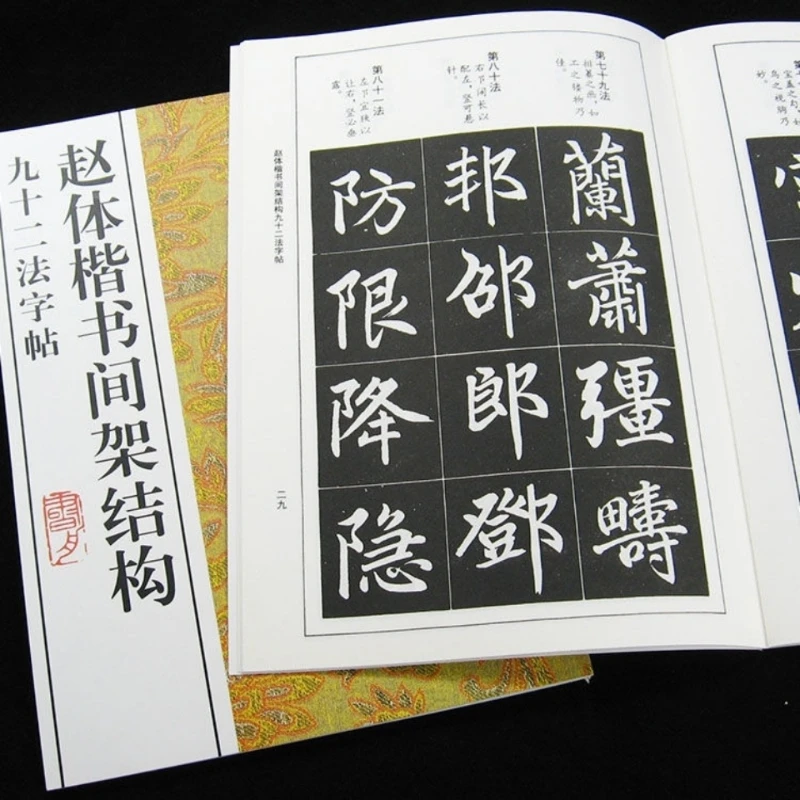 赵体楷书间架结构
九十二法字帖
宝盖之勾,如
鸟之视胸乃
妙。
第七十九法
之画,如
工之缕物乃
佳。
蘭蕭彊疇
第八十法
右阝阔长以
配左,竖可悬
针。
邦邵郎鄧
第八十一法
左阝宜狭以
让右,竖必垂
露。
防限降隐
赵体楷书间架结构九十二法字帖
二九